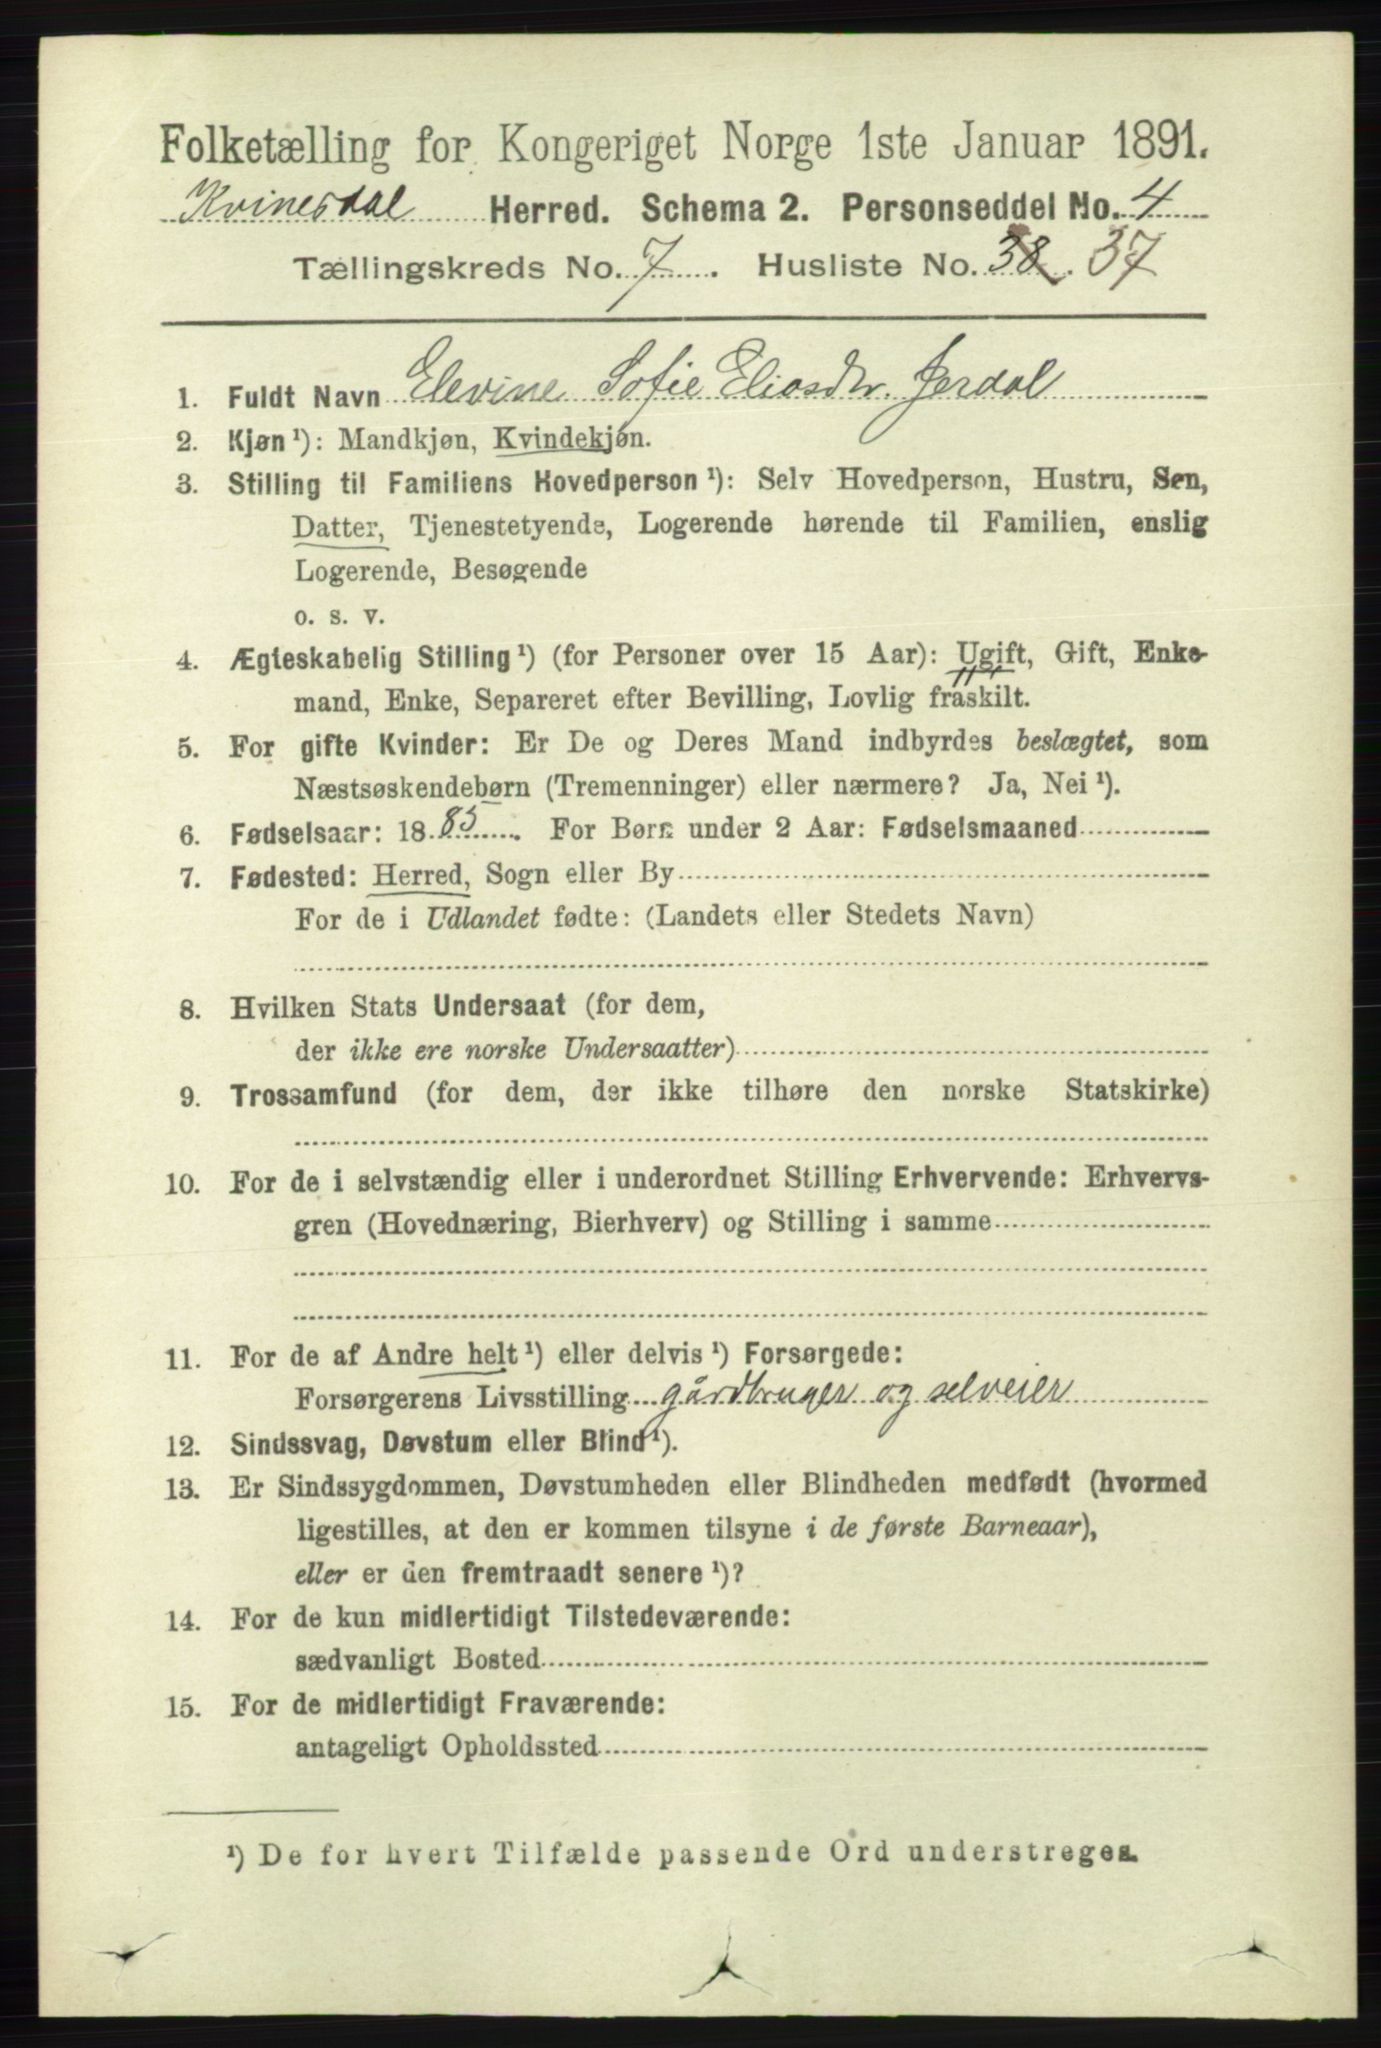 Folketælling for Kongeriget Norge 1ste Januar 1891.
Kvinesdal Herred. Schema 2. Personseddel No. 4
Tællingskreds No. 7. Husliste No. 38. 37
1. Fuldt Navn Elevine Sofie Eliasdtr. Jerdal
2. Kjøn¹): Mandkjøn, Kvindekjøn.
3. Stilling til Familiens Hovedperson¹): Selv Hovedperson, Hustru, Søn,
Datter, Tjenestetyende, Logerende hørende til Familien, enslig
Logerende, Besøgende
o. s. v.
4. Ægteskabelig Stilling¹) (for Personer over 15 Aar): Ugift, Gift, Enke-
mand, Enke, Separeret efter Bevilling, Lovlig fraskilt.
5. For gifte Kvinder: Er De og Deres Mand indbyrdes beslægtet, som
Næstsøskendebørn (Tremenninger) eller nærmere? Ja, Nei¹).
6. Fødselsaar: 1885. For Børn under 2 Aar: Fødselsmaaned
7. Fødested: Herred, Sogn eller By
For de i Udlandet fødte: (Landets eller Stedets Navn)
8. Hvilken Stats Undersaat (for dem,
der ikke ere norske Undersaatter)
9. Trossamfund (for dem, der ikke tilhøre den norske Statskirke)
10. For de i selvstændig eller i underordnet Stilling Erhvervende: Erhvervs-
gren (Hovednæring, Bierhverv) og Stilling i samme
11. For de af Andre helt¹) eller delvis¹) Forsørgede:
Forsørgerens Livsstilling gårdbruger og selveier
12. Sindssvag, Døvstum eller Blind¹).
13. Er Sindssygdommen, Døvstumheden eller Blindheden medfødt (hvormed
ligestilles, at den er kommen tilsyne i de første Barneaar),
eller er den fremtraadt senere¹)?
14. For de kun midlertidigt Tilstedeværende:
sædvanligt Bosted
15. For de midlertidigt Fraværende:
antageligt Opholdssted
¹) De for hvert Tilfælde passende Ord understreges.